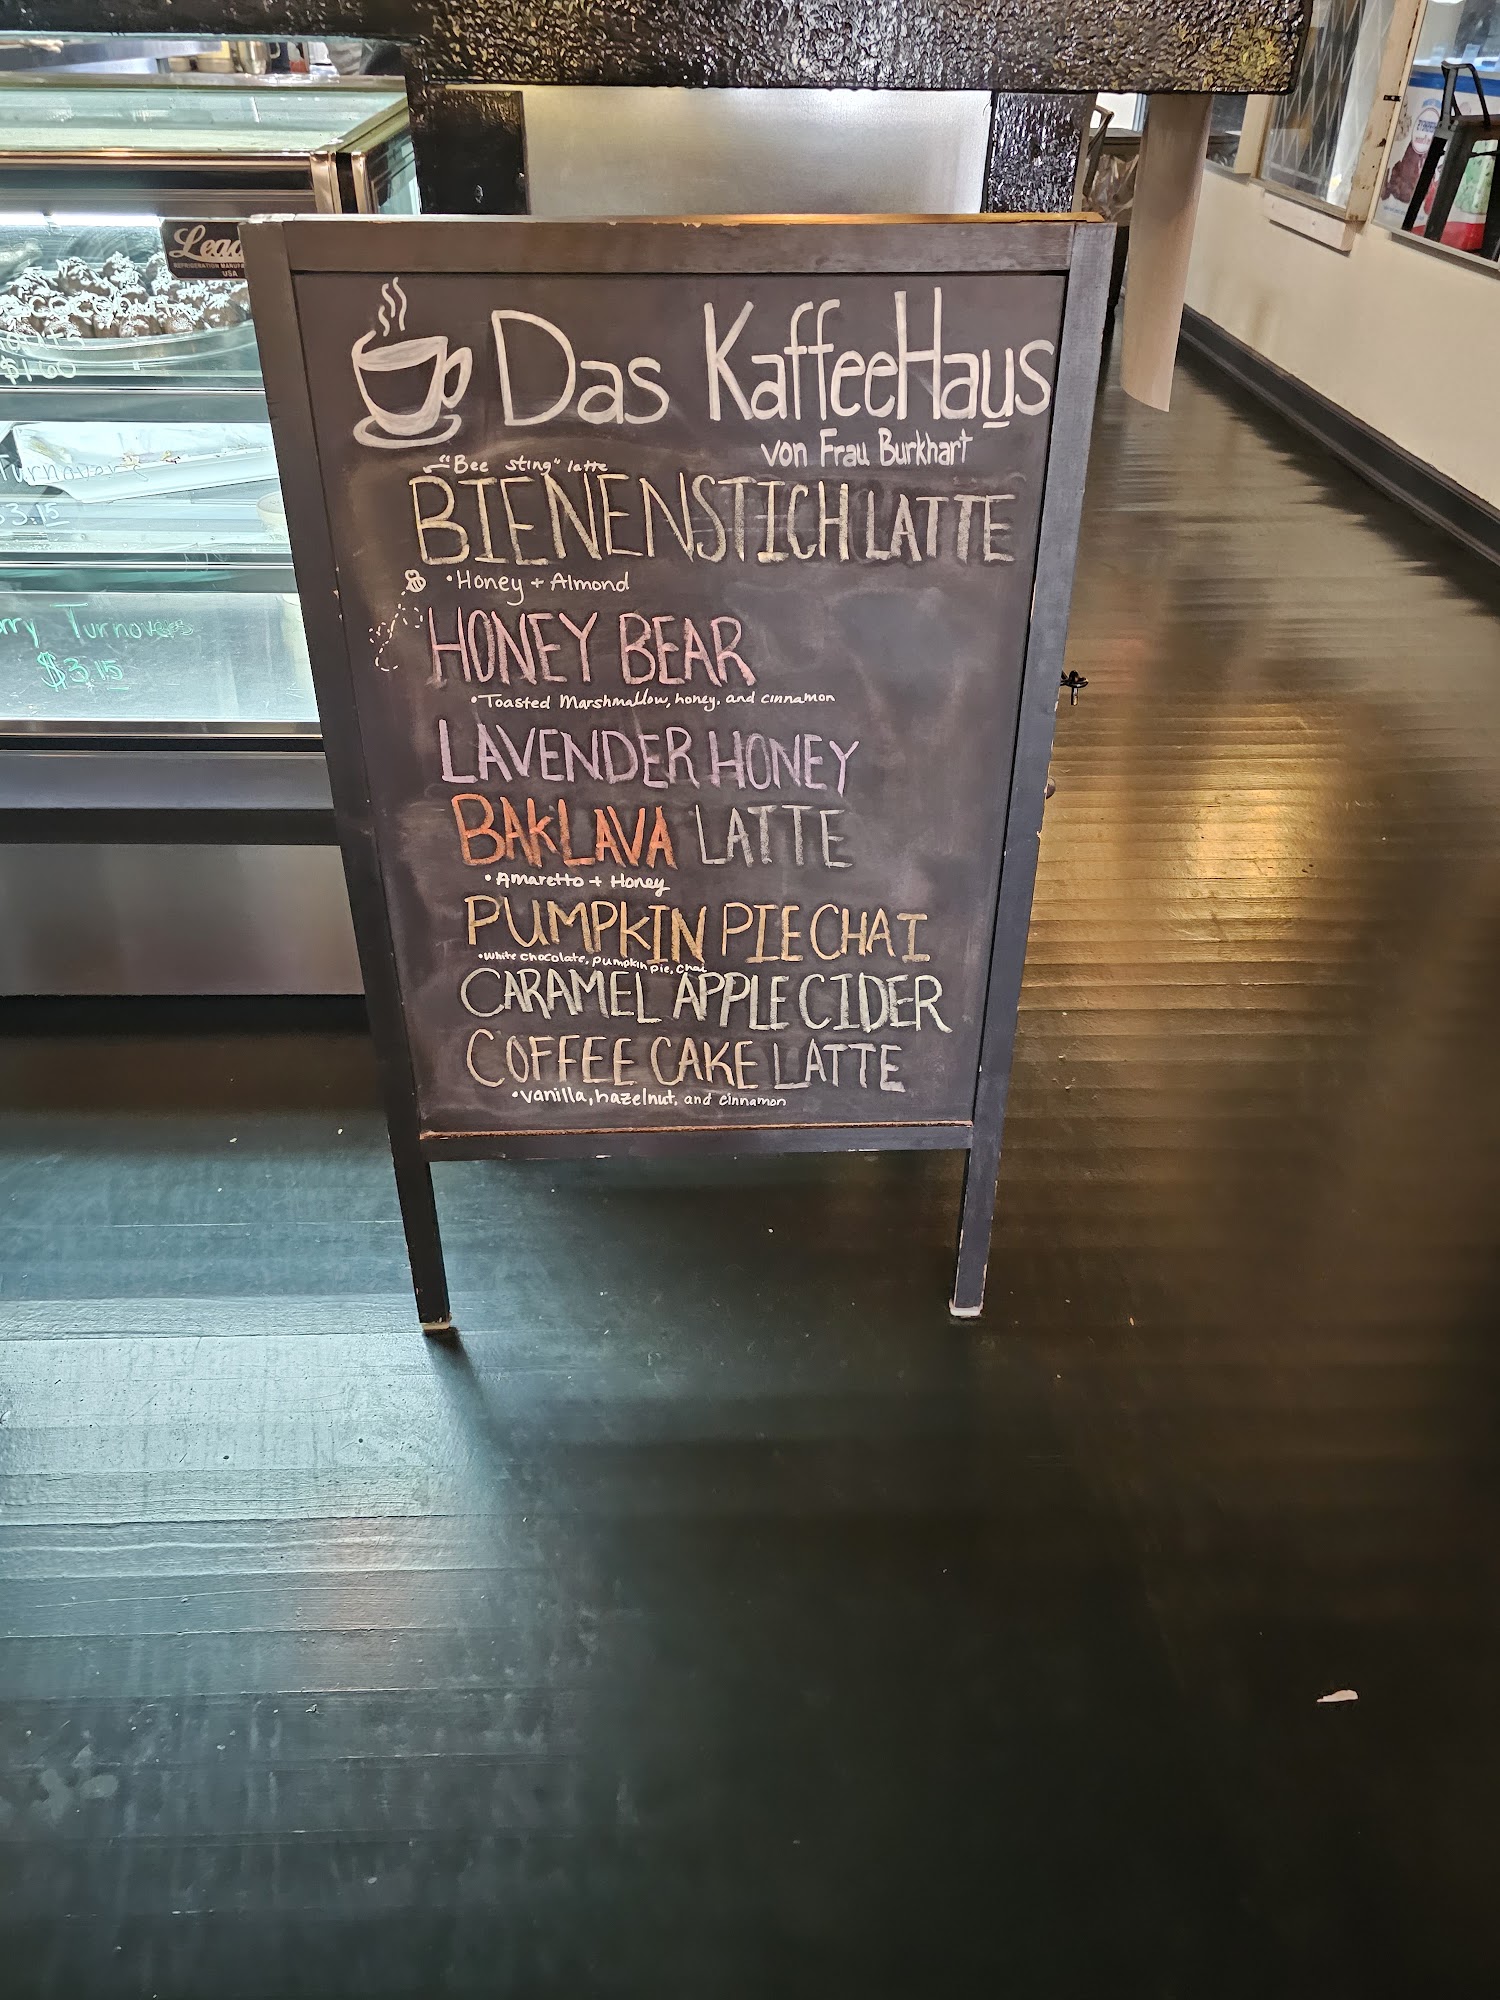 Das KaffeeHaus
von Frau Burkhart
"Bee sting" latte
BIENENSTICH LATTE
•Honey + Almond
HONEY BEAR
•Toasted Marshmallow, honey, and cinnamon
LAVENDER HONEY
BAKLAVA LATTE
•Amaretto + Honey
PUMPKIN PIE CHAI
•white chocolate, pumpkin pie, chai
CARAMEL APPLE CIDER
COFFEE CAKE LATTE
•vanilla, hazelnut, and cinnamon
REFRIGERATION
USA
$1.60
Turnover
$3.15
Turnovers
$3.15